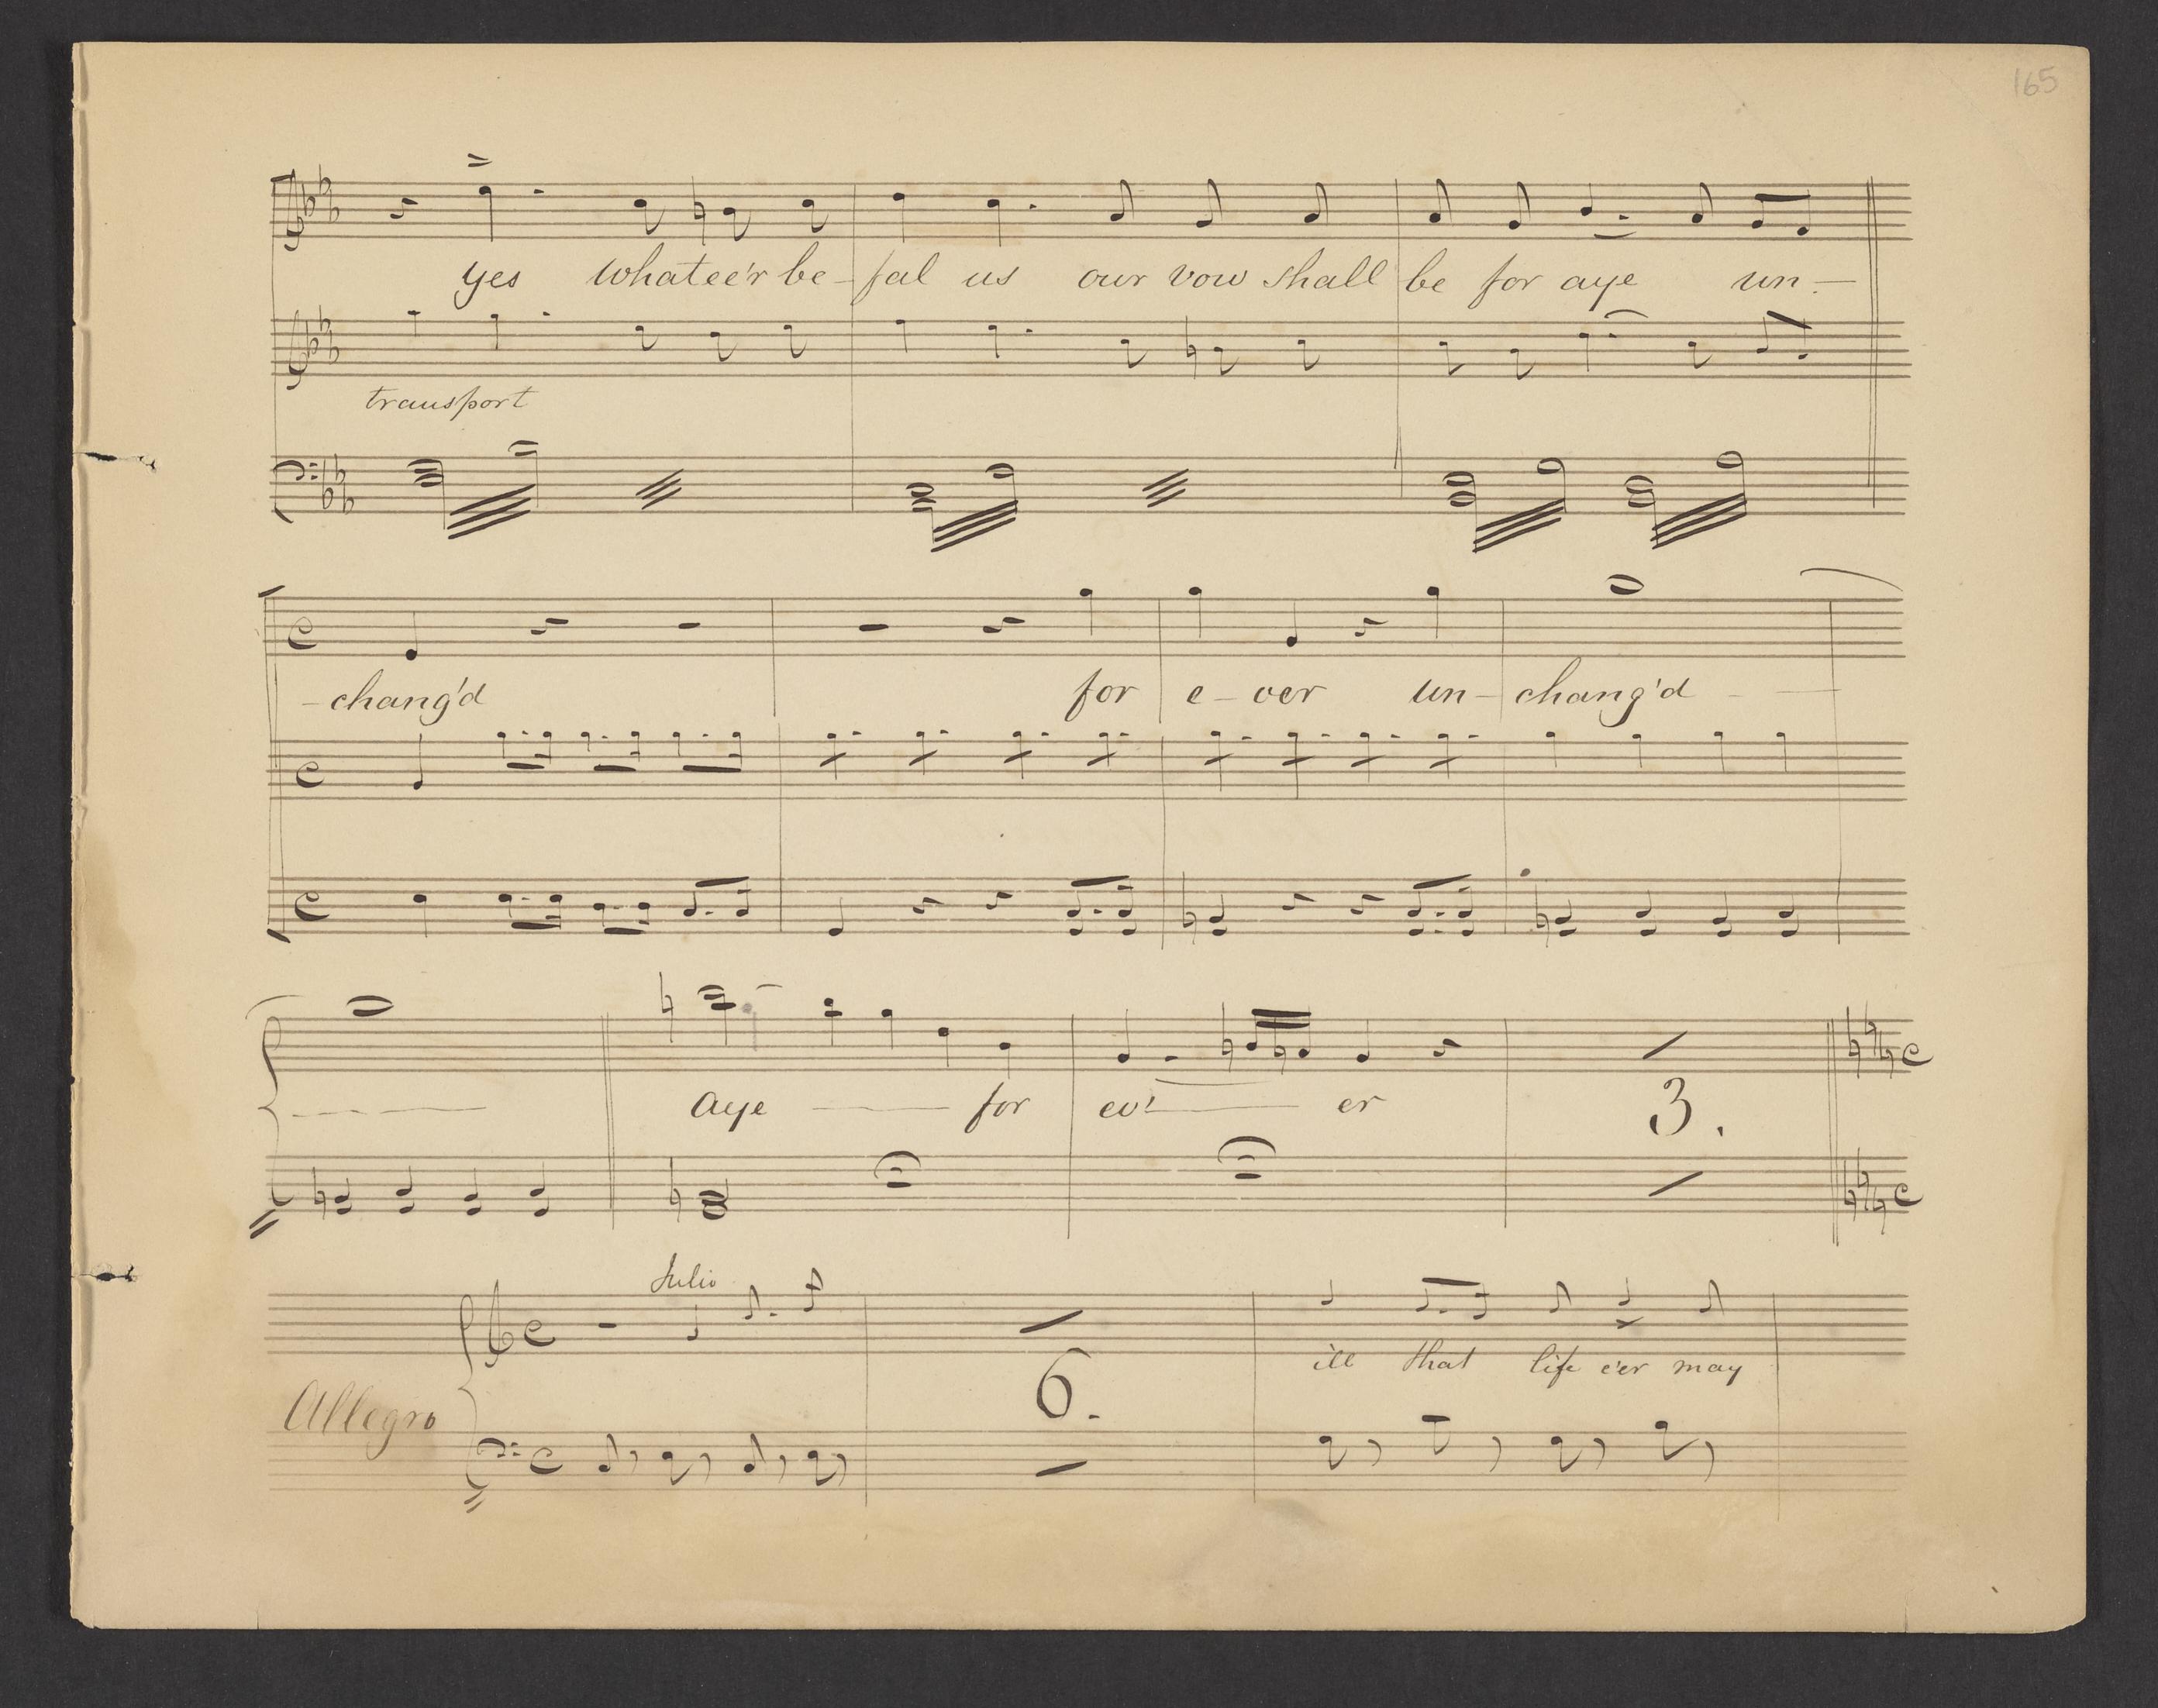 165
yes whatee'r be- fal us our vow shall be for aye un-
transport
-chang'd for e-ver un-chang'd
aye for ev'- er
3.
Julio
6.
ill that life e'er may
Allegro